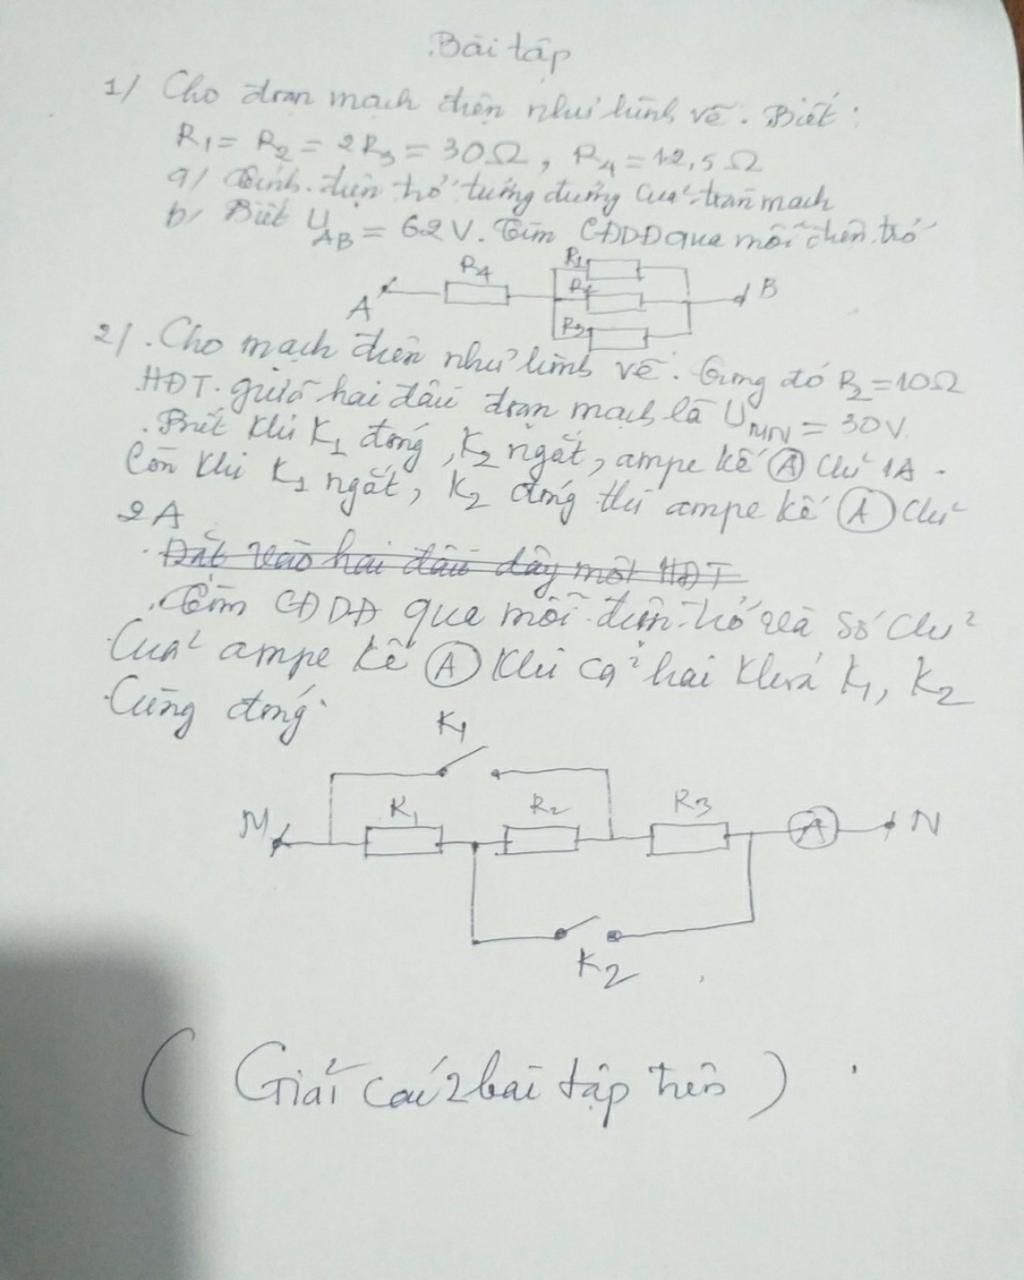 Bài tập
1/ Cho đoạn mạch điện như hình vẽ. Biết:
R₁ = R₂ = 2R₃ = 30Ω, R₄ = 12,5Ω
a/ Tính điện trở tương đương của toàn mạch
b/ Biết U_AB = 62V. Tìm CĐDĐ qua mỗi điện trở
A R₄ R₁ B
R₃
2/. Cho mạch điện như hình vẽ. Trong đó R₂ = 10Ω
HĐT giữa hai đầu đoạn mạch là U_MN = 30V.
. Biết khi K₁ đóng, K₂ ngắt, ampe kế Ⓐ chỉ 1A.
Còn khi K₁ ngắt, K₂ đóng thì ampe kế Ⓐ chỉ
2A
. Đặt vào hai đầu dây một HĐT
. Tìm CĐDĐ qua mỗi điện trở và số chỉ
của ampe kế Ⓐ khi cả hai khoá K₁, K₂
cùng đóng.
K₁
M R₁ R₂ R₃ A N
K₂
( Giải cả 2 bài tập trên ) .